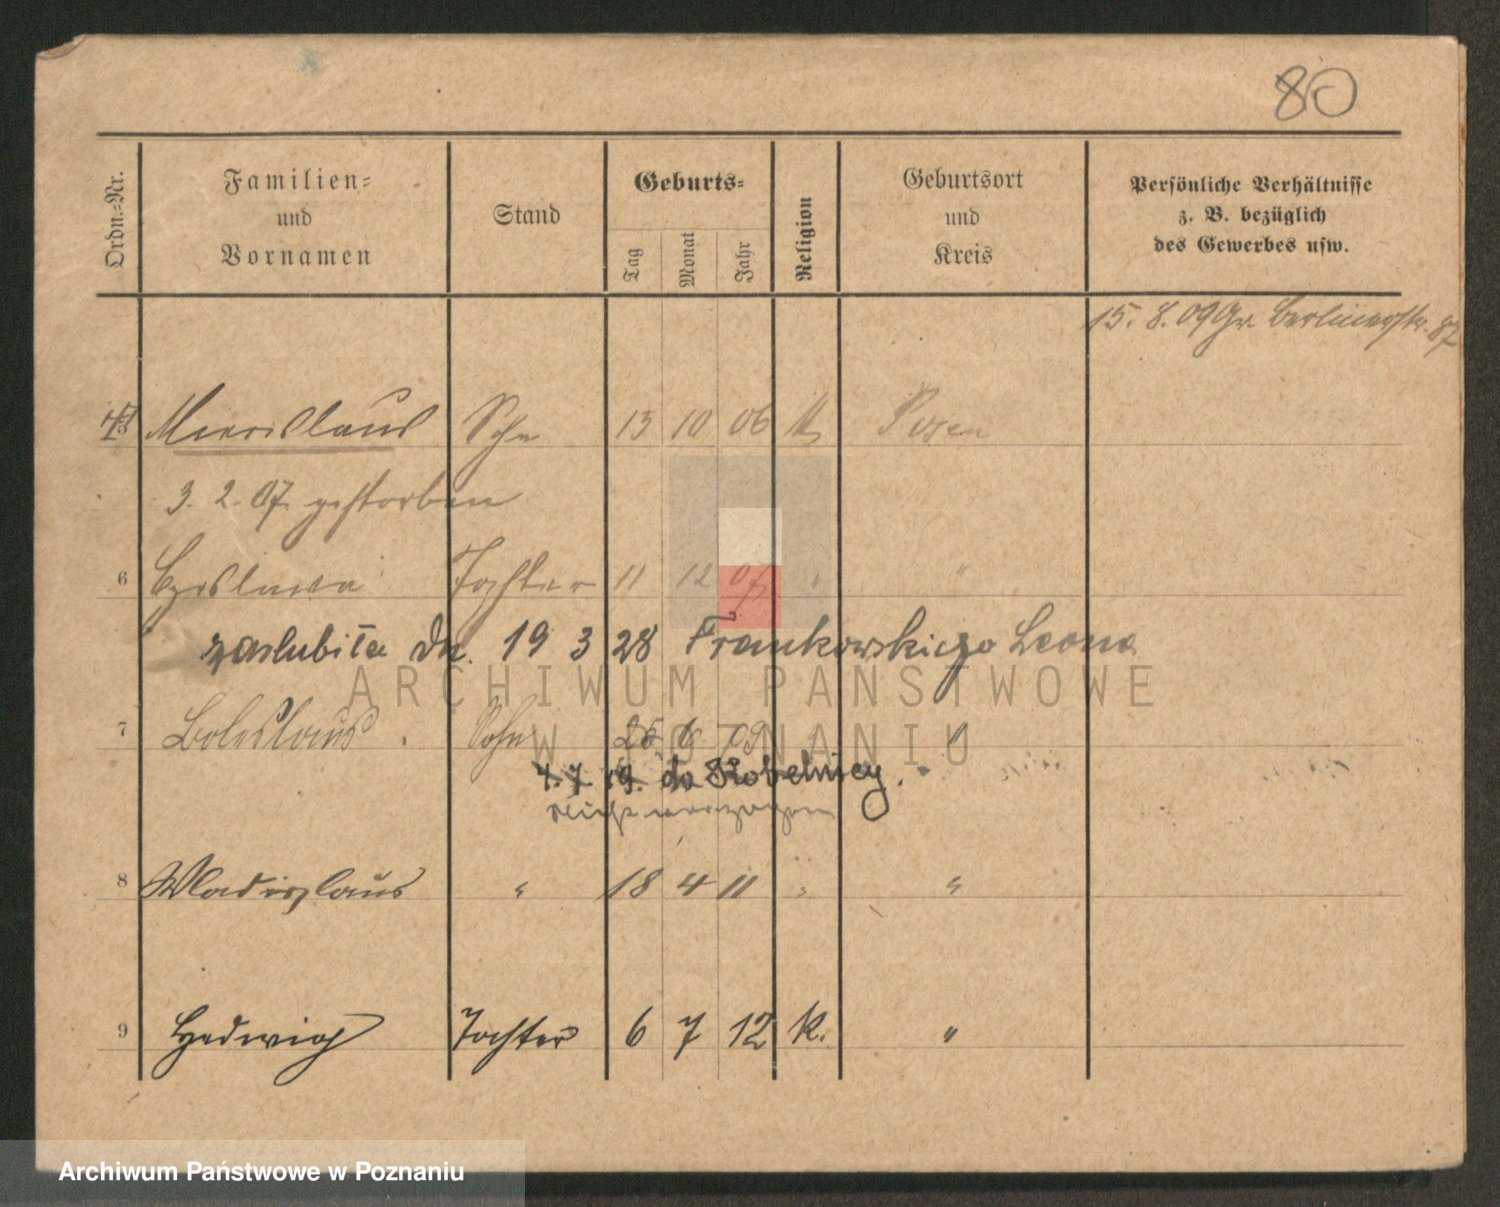 80
Ordn.-Nr.
Familien-
und
Vornamen
Stand
Geburts-
Tag
Monat
Jahr
Religion
Geburtsort
und
Kreis
Persönliche Verhältnisse
z. B. bezüglich
des Gewerbes usw.
15. 8. 09 Gr. Berlinerstr. 87
5 Miecislaus Sohn 13 10 06 K Posen
3. 2. 07. gestorben
6 Czeslawa Tochter 11 12 07 " "
zaslubiła dn. 19 3 28 Frankowskiego Leona
ARCHIWUM PAŃSTWOWE
W POZNANIU
7 Boleslaus Sohn 25 6 09 "
4. 7 19. do Kobelnicy.
nicht verzogen
8 Wladislaus " 18 4 11 " "
9 Hedwig Tochter 6 7 12 k. "
Archiwum Państwowe w Poznaniu